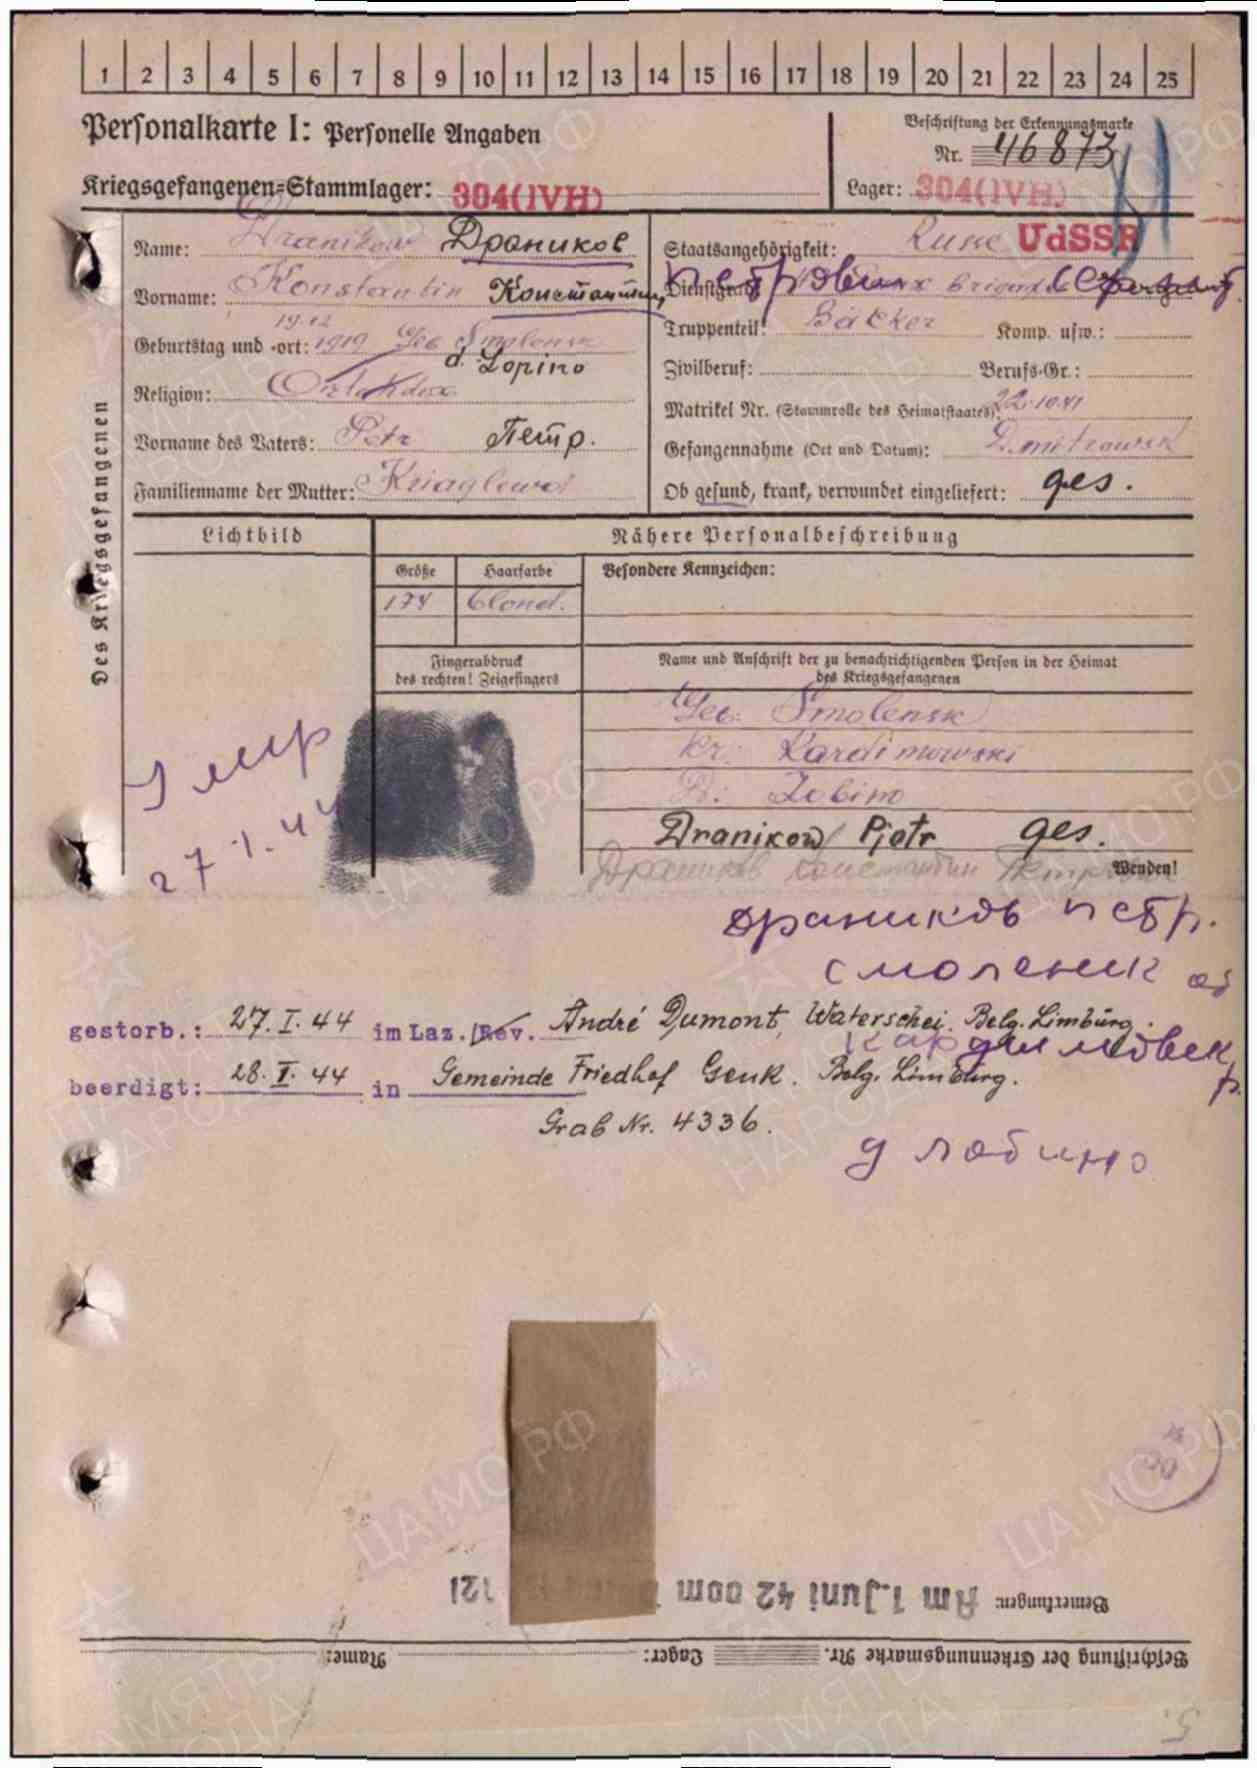 1 2 3 4 5 6 7 8 9 10 11 12 13 14 15 16 17 18 19 20 21 22 23 24 25
Personalkarte I: Personelle Angaben
Kriegsgefangenen-Stammlager: 304(IVH)
Beschriftung der Erkennungsmarke
Nr. 46873
Lager: 304(IVH)
Des Kriegsgefangenen
Name: Dranikow Драников
Vorname: Konstantin Константин
19.12
Geburtstag und -ort: 1919 Geb Smolensk
d. Lopino
Religion: Ortodox
Vorname des Vaters: Petr Петр.
Familienname der Mutter:
Staatsangehörigkeit: Russe UdSSR
Dienstgrad: Петрович
Truppenteil: Bäcker Komp. usw.:
Zivilberuf: Berufs-Gr.:
Matrikel Nr. (Stammrolle des Heimatstaates): 22.10.41
Gefangennahme (Ort und Datum): Dmitrowsk
Ob gesund, krank, verwundet eingeliefert: ges.
Lichtbild
Nähere Personalbeschreibung
Größe Haarfarbe Besondere Kennzeichen:
174 blond.
Fingerabdruck
des rechten! Zeigefingers
Name und Anschrift der zu benachrichtigenden Person in der Heimat
des Kriegsgefangenen
Geb. Smolensk
Kr. Kardimowski
D. Lobino
Dranikow Pjotr ges.
Драников Константин Петрович
Wenden!
Умер
27.1.44
Драников Петр.
смоленск об
кардимовск
р.
д лобино
gestorb.: 27.I.44 im Laz./Rev. André Dumont, Waterschei. Belg. Limburg.
beerdigt: 28.I.44 in Gemeinde Friedhof Genk. Belg. Limburg.
Grab Nr. 4336.
Bemerkungen: Am 1. Juni 42 vom 121
Beschriftung der Erkennungsmarke Nr. Lager: Name:
5.